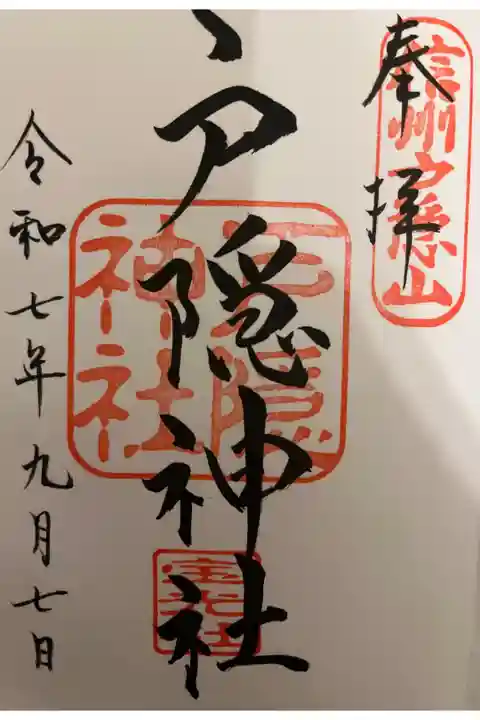 奉拝
信州戸隠山
戸隠神社
戸隠
神社
宝光社
令和七年九月七日